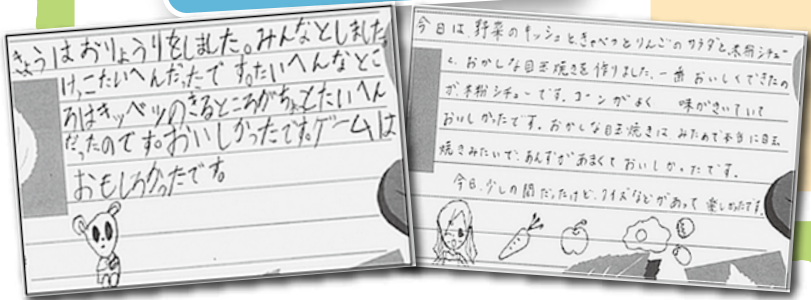 きょうはおりょうりをしました。みんなとしました。
けっこたいへんだったです。たいへんなとこ
ろはキッベツのきるところがちょとたいへん
だったのです。おいしかったです。ゲームは
おもしろかったです。
今日は、野菜のキッシュと、きゃべつとりんごのサラダと、米粉シチュー
と、おかしな目玉焼きを作りました。一番おいしくできたの
が、米粉シチューです。コーンがよく 味がきいていて
おいしかったです。おかしな目玉焼きはみためで本当に目玉
焼きみたいで、あんずがあまくておいしかったです。
今日、少しの間だったけど、クイズなどがあって楽しかったです。